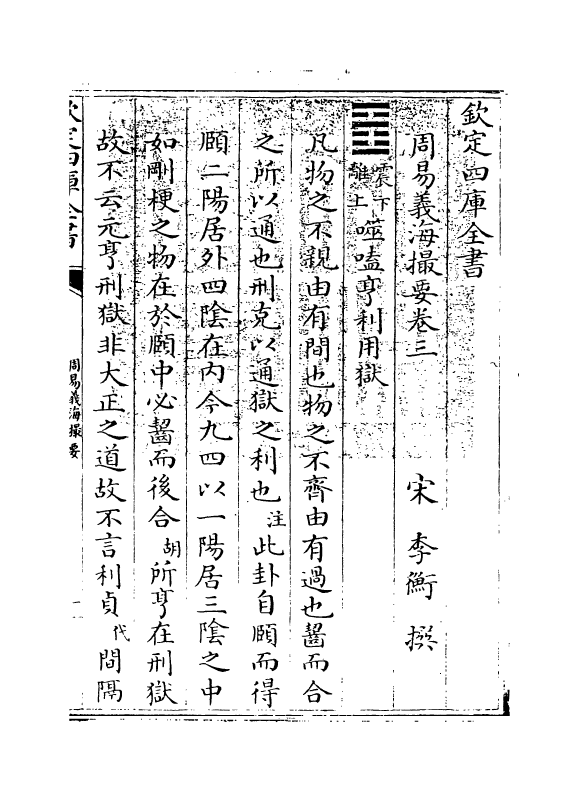 欽定四庫全書
周易義海撮要卷三
宋 李衡 撰
䷔震下離上噬嗑亨利用獄
凡物之不親由有間也物之不齊由有過也齧而合
之所以通也刑克以通獄之利也注此卦自頤而得
頤二陽居外四陰在内今九四以一陽居三陰之中
如剛梗之物在於頤中必齧而後合胡所亨在刑獄
故不云元亨刑獄非大正之道故不言利貞代間隔
欽定四庫全書
周易義海撮要
一